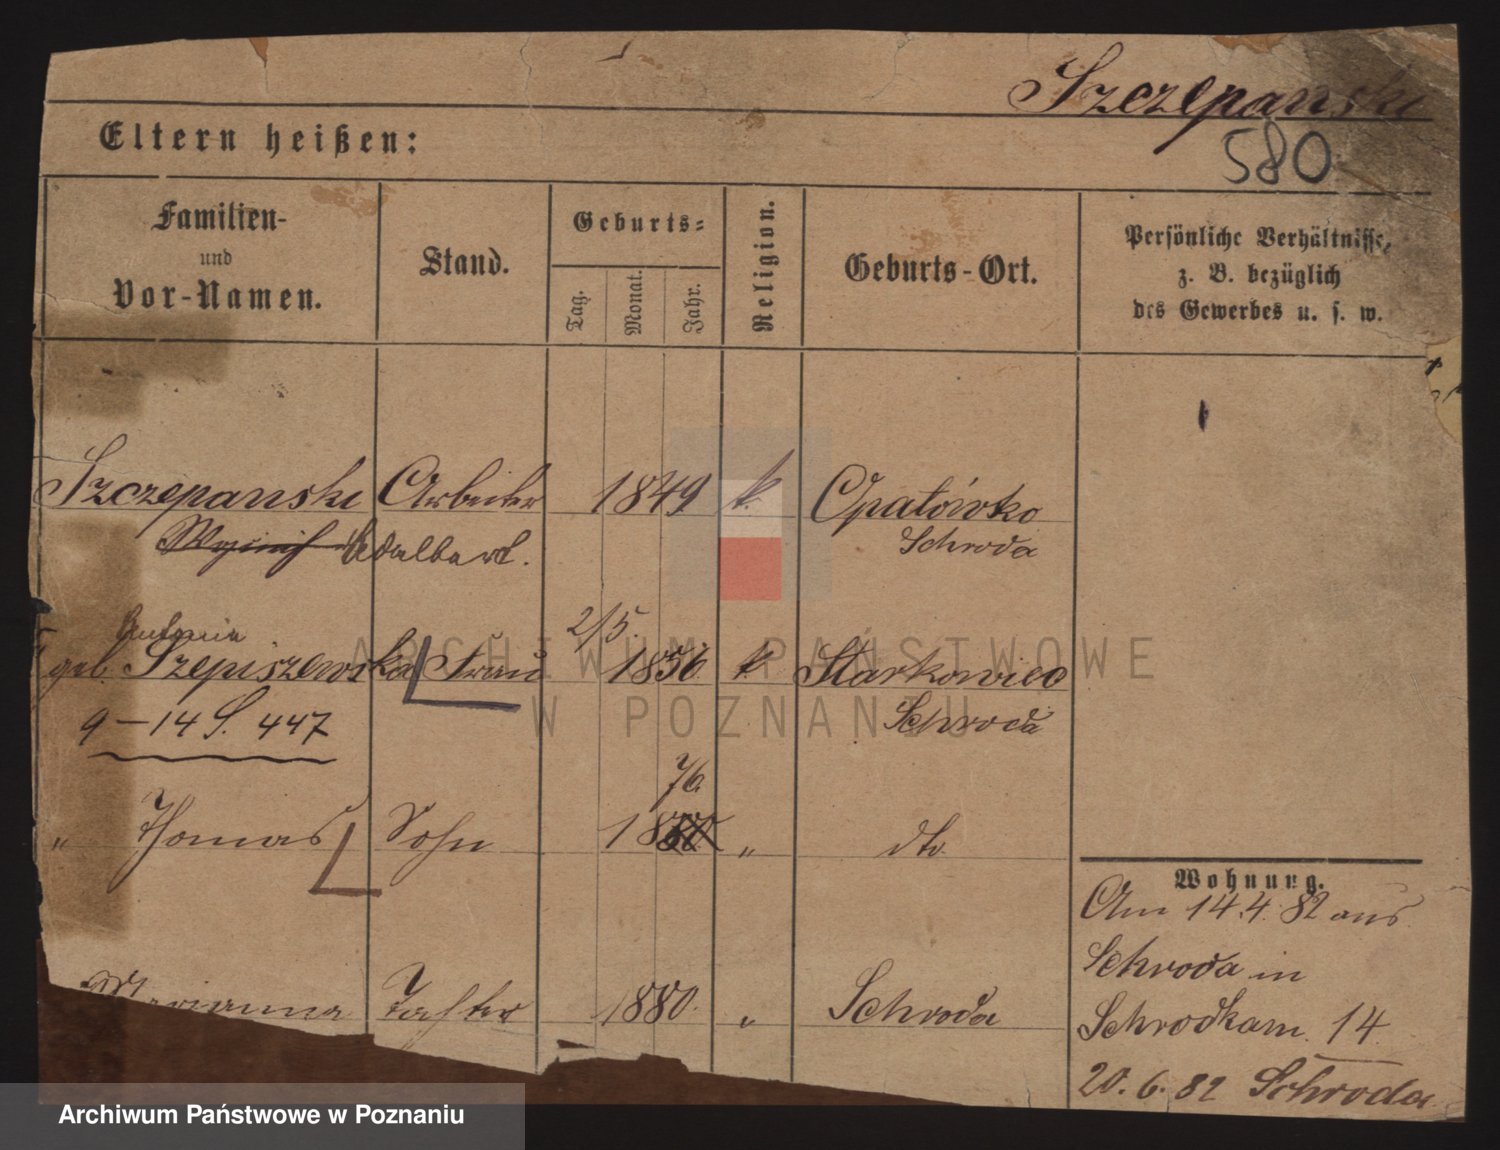 Szczepanski
580
Eltern heißen:
Familien-
und
Vor-Namen.
Stand.
Geburts-
Tag.
Monat.
Jahr.
Religion.
Geburts-Ort.
Persönliche Verhältnisse,
z. B. bezüglich
des Gewerbes u. s. w.
Szczepanski Arbeiter 1849 k. Opatówko
Adalbert. Schroda
Antonia 2/5.
geb. Szepiszewska Frau 1856 k. Starkowiec
9-14 S. 447 Schroda
76
" Thomas Sohn 18 " dto
Marianna Tochter 1880. " Schroda
Wohnung.
Am 14.4.82 aus
Schroda in
Schrodkam. 14
20.6.82 Schroda
ARCHIWUM PAŃSTWOWE
W POZNANIU
Archiwum Państwowe w Poznaniu